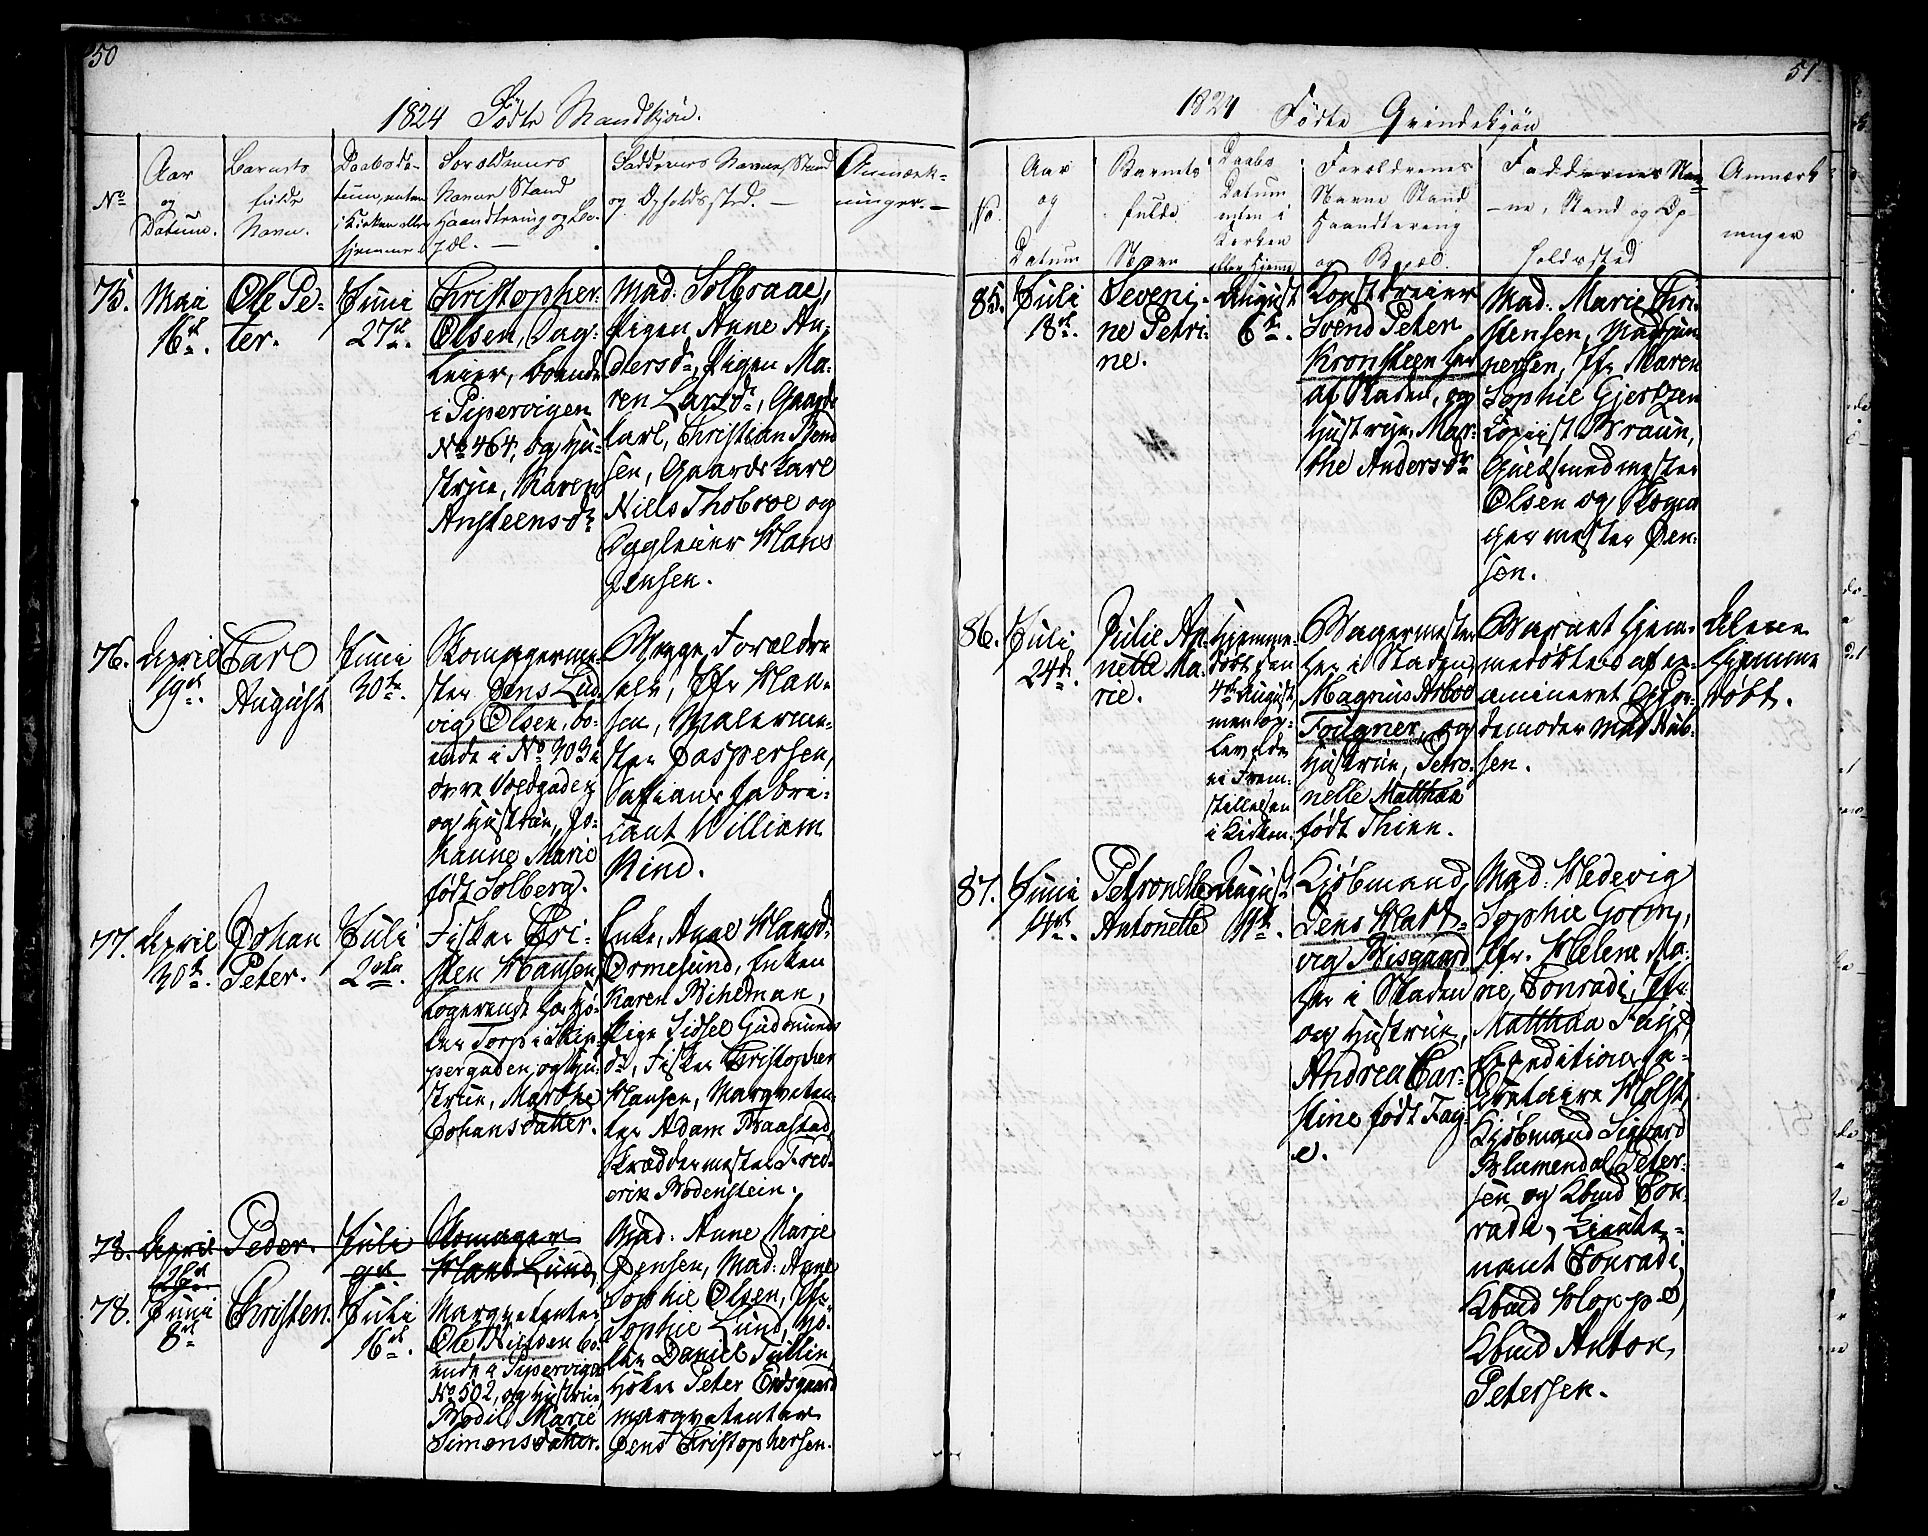 50
1824 Fødte Mandkjøn.
No
Aar
og
Datum.
Barnets
fulde
Navn.
Daabsda-
tum, enten
i Kirken eller
hjemme.
Forældrenes
Navne Stand
Haandtering og Bo-
pæl. —
Faddernes Navne, Stand
og Opholdssted. —
Anmærk-
ninger. —
75.
Mai
16de.
Ole Pe-
ter.
Juni
27de.
Christopher
Olsen, Dag-
leier, boende
i Pipervigen
No 464, og Hu-
strue, Karen
Ansteensdr
Mad: Solbraae,
Pigen Anne An-
dersdr, Pigen Ma-
ren Larsdr, Gaards
karl, Christian Bend
sen, Gaardskarl
Niels Thobroe og
Dagleier Hans
Jensen.
76.
April
19de.
Carl
August
Juni
30te.
Skomagerme-
ster Jens Lud
vig Olsen, bo-
ende i No 303 i
øvre Voldgaden
og Hustrue, Jo-
hanne Marie
født Solberg.
Begge Forældre
selv, Jfr Han-
sen, Malerme-
ster Jaspersen,
Safiansfabri-
kant William
Kind.
77.
April
30te.
Johan
Peter.
Juli
2den.
Fisker Chri-
sten Hansen,
logerende hos Hø-
ker Torp i Skip-
pergaden, og Hu-
strue, Marthe
Johansdatter.
Enke, Anne Hansdr
Ormesund, Enken
Karen Bihlman,
Pige Sidsel Gudmunds
dr, Fisker Christopher
Hansen, Marqveten-
ter Adam Baastad,
Skræddermester Fred-
erik Bodenstein.
78.
April
26de
Peder.
Juli
9de.
Skomager
Hans Lund,
78.
Juni
8de
Christen.
Juli
16de.
Marqvetenter
Ole Nielsen bo-
ende i Pipervigen
No 502, og Hustrue,
Bodil Marie
Simonsdatter.
Mad: Anne Marie
Jensen, Mad: Anne
Sophie Olsen, Jfr
Sophie Lund, Hø-
ker Daniel Tullin,
Høker Peter Endsgaard
Marqvetenter
Jens Christophersen.
51
1824 Fødte Qvindekjøn
No.
Aar
og
Datum
Barnets
fulde
Navn
Daabs
Datum
enten i
Kerken
eller Hjemme
Forældrenes
Navne Stand
Haandtering
og Bopæl.
Faddernes Nav-
-ne, Stand og Op-
holdssted
Anmærk
ninger
85.
Juli
18de.
Severi-
ne Petri-
ne.
August
6te.
Konstdreier
Svend Peter
Kronsteen her
af Staden, og
Hustrue, Mar-
the Andersdr
Mad: Marie Chri
stensen, Mad: Gun
nersen, Jfr Maren
Sophie Gjertzen
Copiist Braun,
Guldsmedmester
Olsen og Skoma
germester Jen-
sen.
86.
Juli
24de.
Julie An-
nette Ma-
rie.
Hjemme-
døbt den
4de August,
men op-
levede
ei Frem-
stillelsen
i Kirken.
Bagermester
her i Staden
Magnus Arboe
Fougner, og
Hustrue, Petro-
nelle Matthæa
født Thinn.
Barnet hjem-
medøbtes af ex-
amineret Gjor-
demoder Mad Rub-
sen.
Alene
hjemme
døbt.
87.
Juni
14de.
Petronelle
Antonette
August
11te.
Kjøbmand,
Jens Hart-
vig Bisgaard
her i Staden
og Hustrue,
Andrea Chri-
stine født Fag-
e.
Mad: Hedevig
Sophie Gorm,
Jfr. Helene Ma-
rie Conradi, Jfr
Matthæa Faye,
Expeditions Se-
cretaire Holst,
Kjøbmand Sigvard
Blumendal Peter-
sen og Kbmd Con-
radi, Lieute-
nant Conradi,
Kbmd Hoppe,
Kbmd Anton
Petersen.